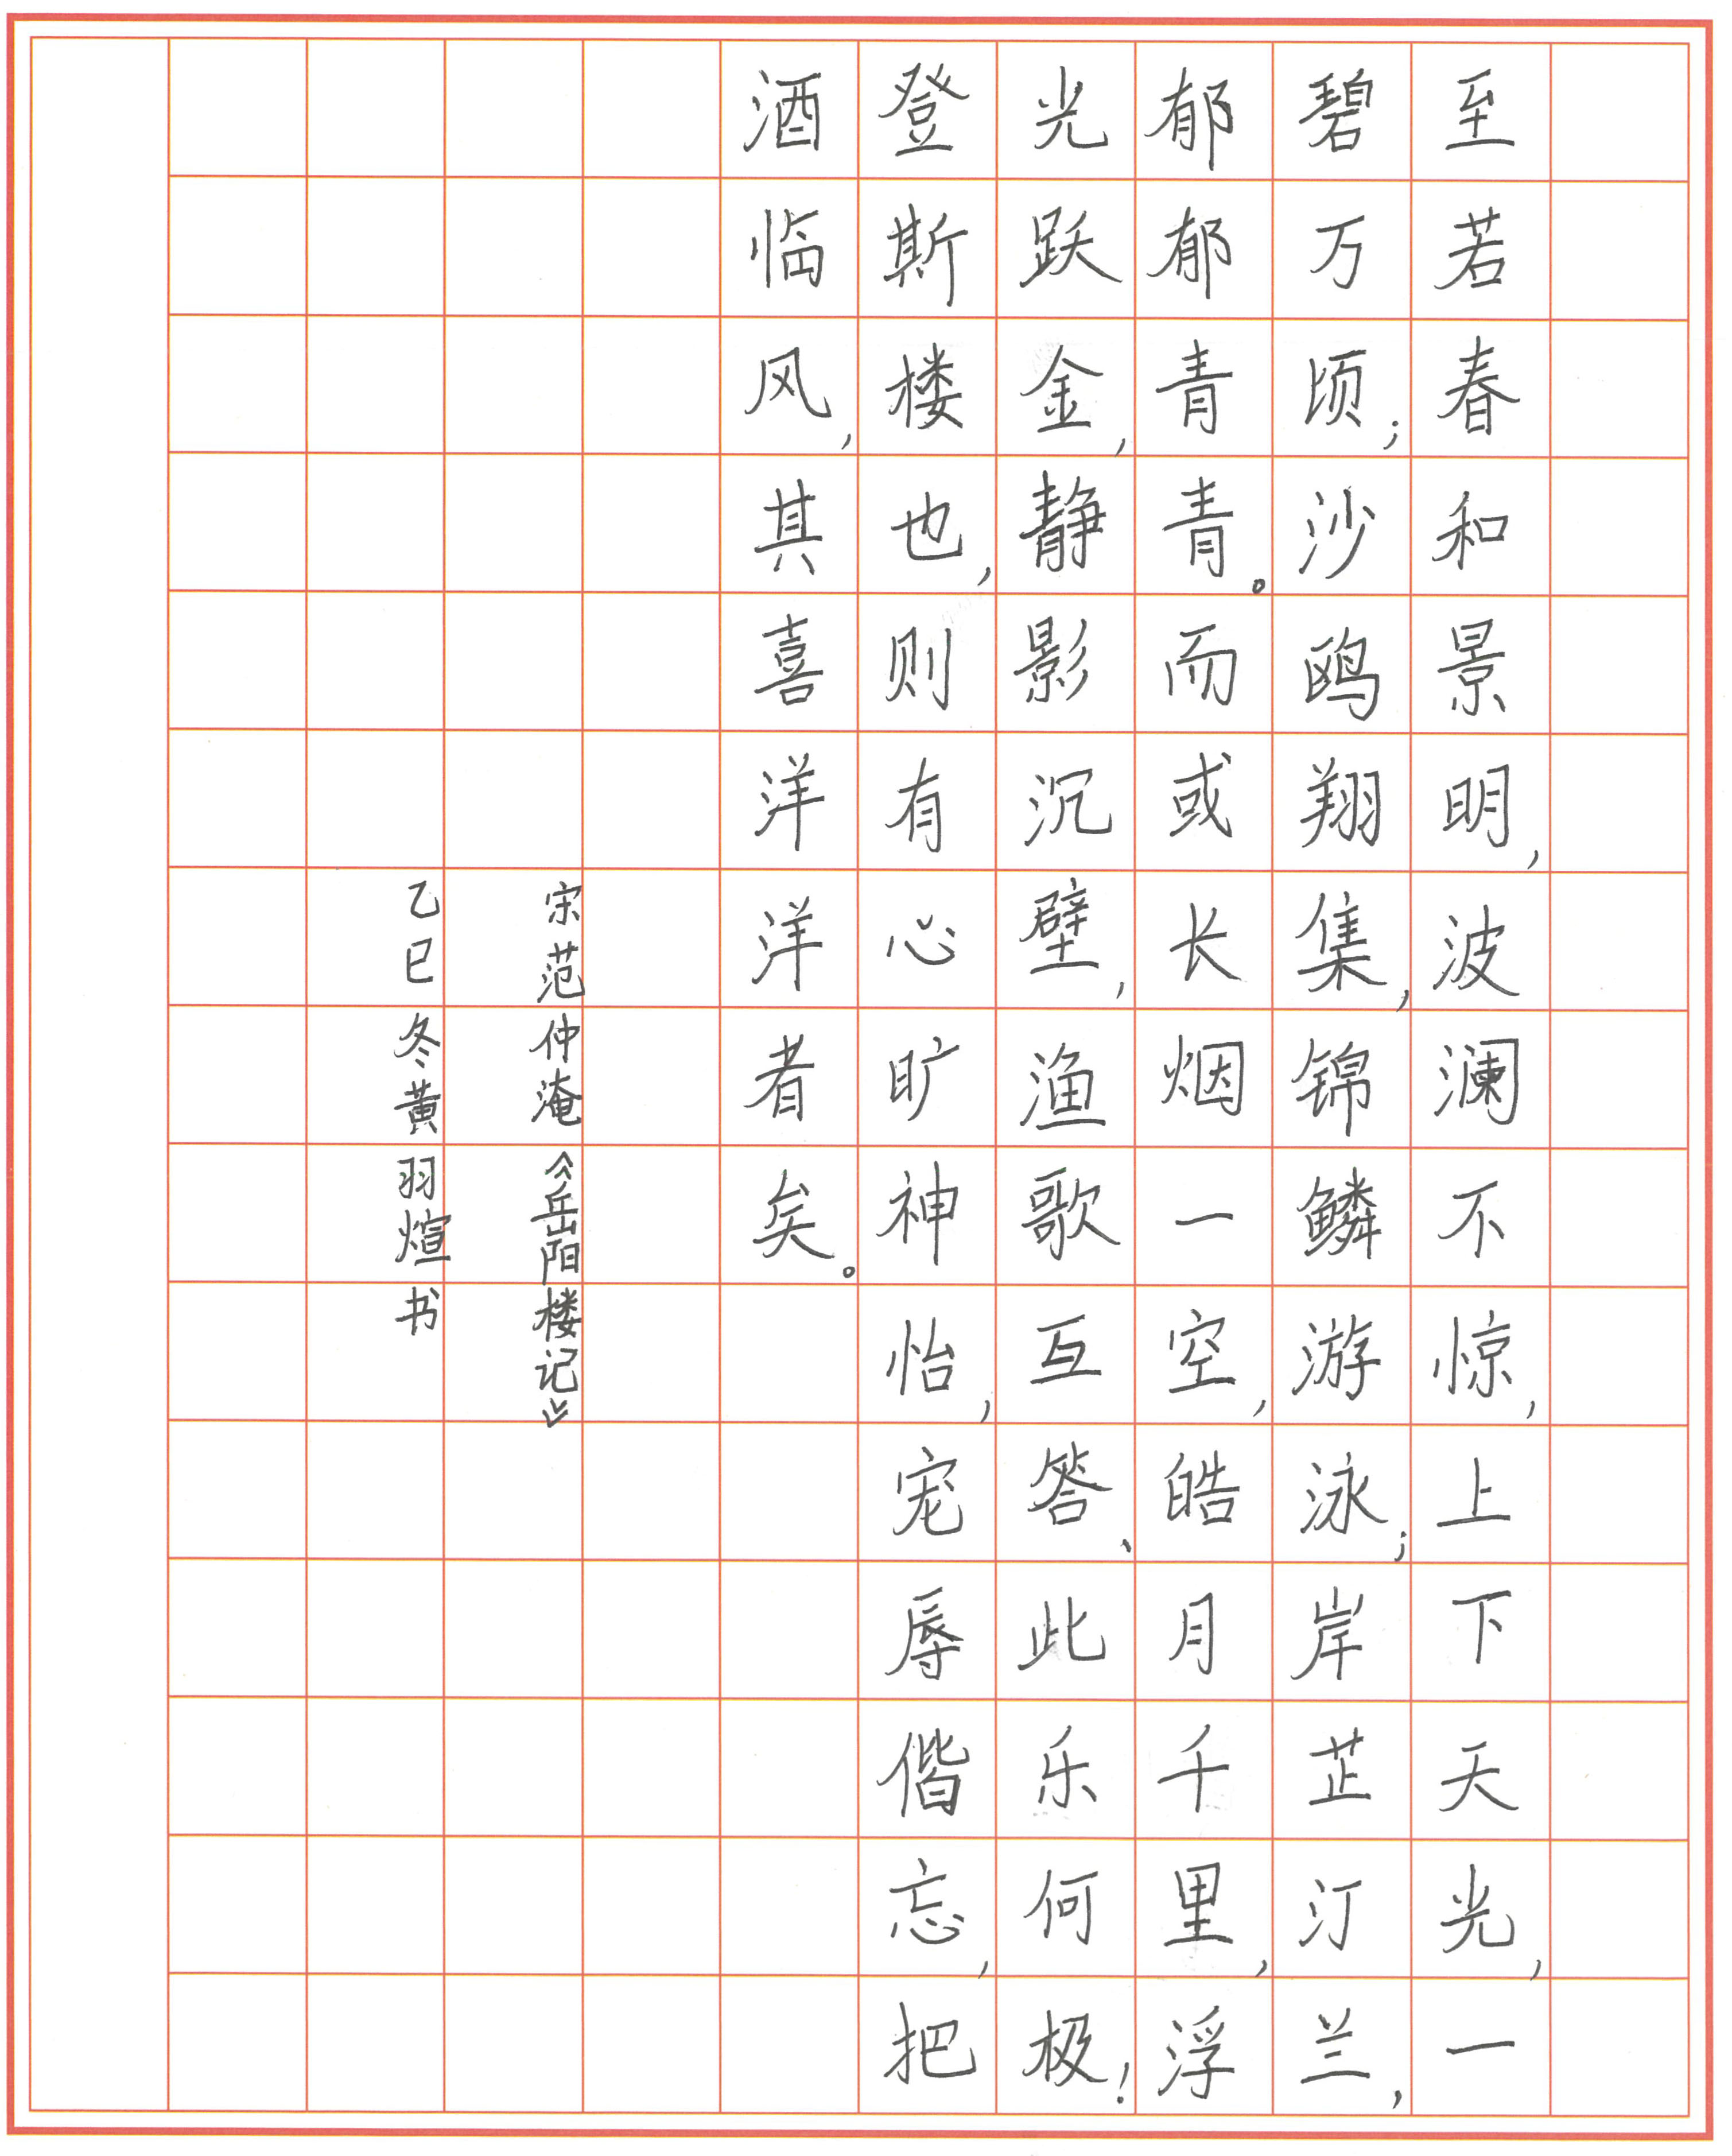 至若春和景明,波澜不惊,上下天光,一
碧万顷;沙鸥翔集,锦鳞游泳;岸芷汀兰,
郁郁青青。而或长烟一空,皓月千里,浮
光跃金,静影沉璧,渔歌互答、此乐何极!
登斯楼也,则有心旷神怡,宠辱偕忘,把
酒临风,其喜洋洋者矣。
宋范仲淹《岳阳楼记》
乙巳冬黄羽煊书